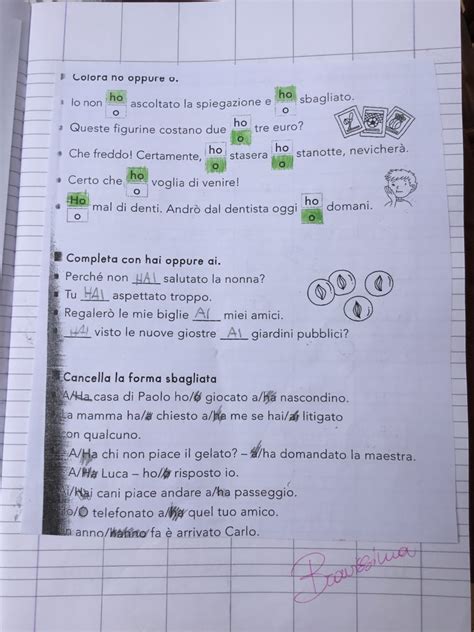 Colora ho oppure o.
Io non ho o ascoltato la spiegazione e ho o sbagliato.
Queste figurine costano due ho o tre euro?
Che freddo! Certamente, ho o stasera ho o stanotte, nevicherà.
Certo che ho o voglia di venire!
Ho o mal di denti. Andrò dal dentista oggi ho o domani.
Completa con hai oppure ai.
Perché non HAI salutato la nonna?
Tu HAI aspettato troppo.
Regalerò le mie biglie AI miei amici.
HAI visto le nuove giostre AI giardini pubblici?
Cancella la forma sbagliata
A/Ha casa di Paolo ho/o giocato a/ha nascondino.
La mamma ha/a chiesto a/ha me se hai/ai litigato
con qualcuno.
A/Ha chi non piace il gelato? – a/ha domandato la maestra.
A/Ha Luca – ho/o risposto io.
i/Hai cani piace andare a/ha passeggio.
o/O telefonato a/ha quel tuo amico.
n anno/hanno fa è arrivato Carlo.
Bravissima